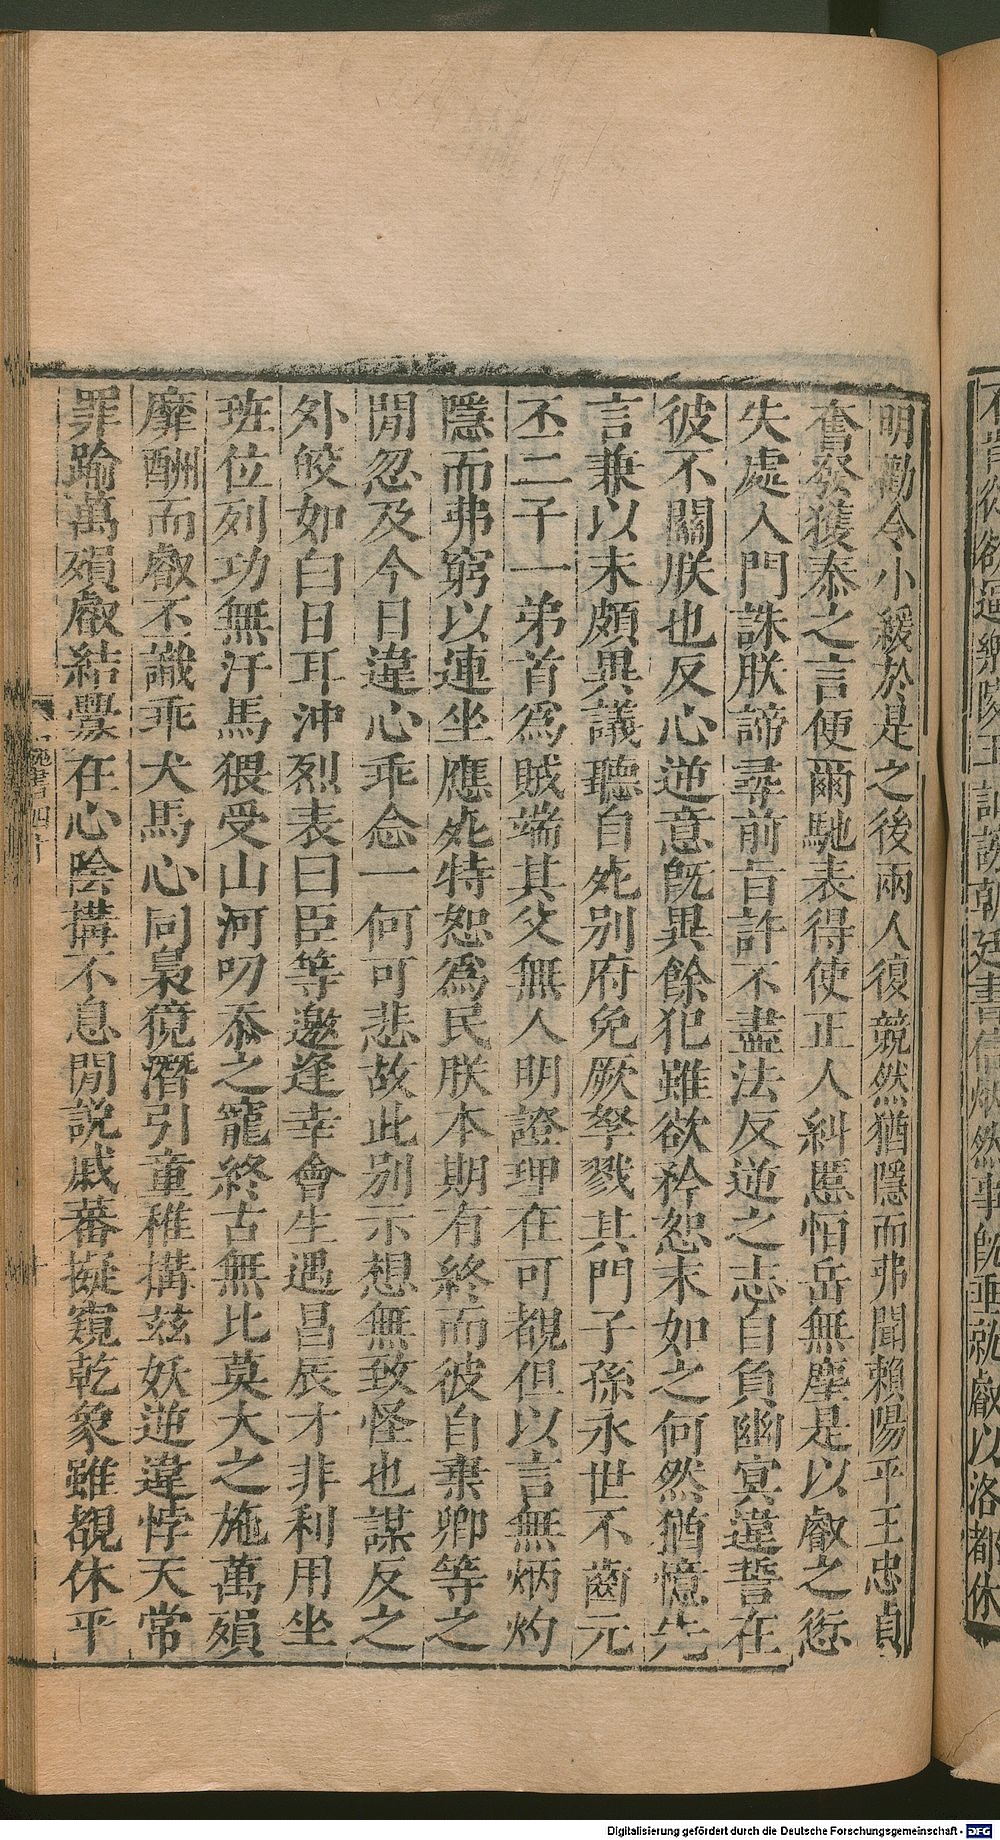 明勸令小緩於是之後兩人復競然猶隱而弗聞賴陽平王忠貞
奮發獲泰之言便爾馳表得使正人糾慝恒岳無塵是以叡之愆
失處入門誅朕諦尋前旨許不盡法反逆之志自負幽冥違誓在
彼不關朕也反心逆意旣異餘犯雖欲矜恕末如之何然猶憶先
言兼以末頗異議聽自死别府免厥孥戮其門子孫永世不齒元
丕二子一弟首爲賊端其父無人明證理在可覩但以言無炳灼
隱而弗窮以連坐應死特恕爲民朕本期有終而彼自棄卿等之
閒忽及今日違心乖念一何可悲故此别示想無致怪也謀反之
外皎如白日耳沖烈表曰臣等邀逢幸會生遇昌辰才非利用坐
班位列功無汗馬猥受山河叨忝之寵終古無比莫大之施萬殞
靡酬而叡丕識乖犬馬心同梟獍潛引童稚搆茲妖逆違悖天常
罪踰萬殞叡結舋在心陰搆不息閒説戚蕃擬窺乾象雖覩休平
魏書四十
欲
樂陵王
朝廷書信
然事旣垂就叡以洛都休
Digitalisierung gefördert durch die Deutsche Forschungsgemeinschaft - DFG